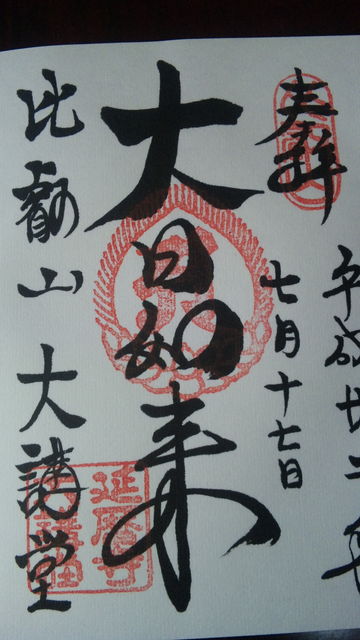 奉拝
平成廿二年
七月十七日
大日如来
比叡山 大講堂
延暦寺